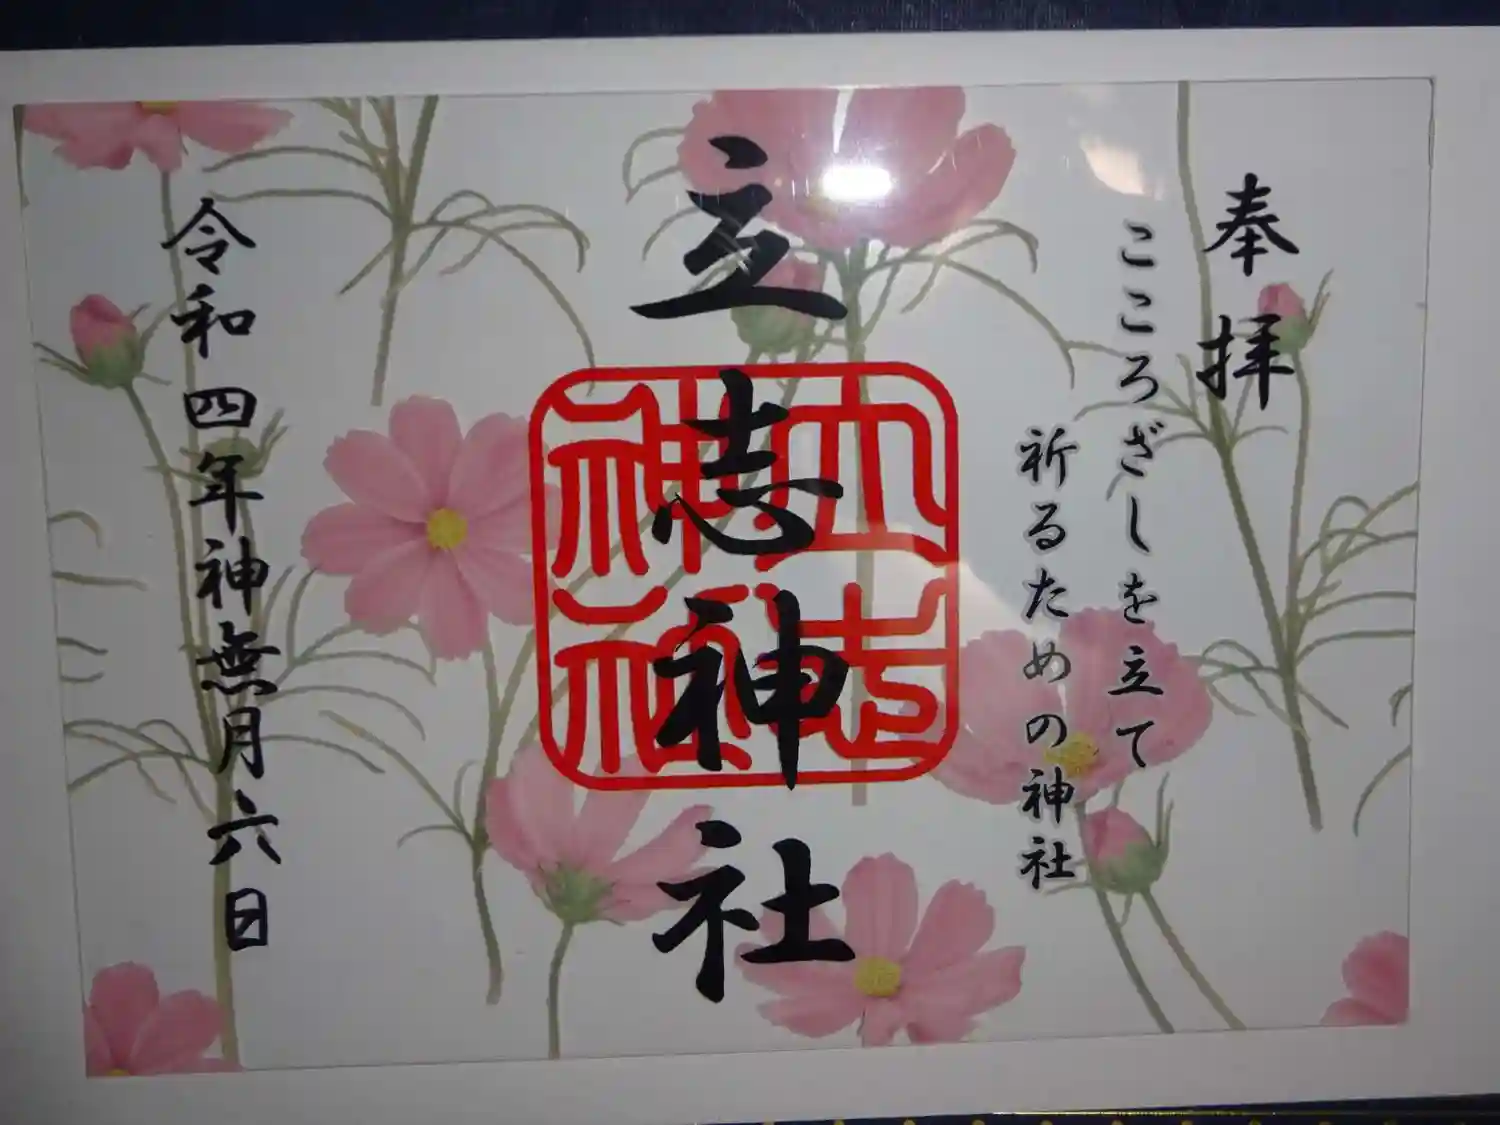 奉拝
こころざしを立て
祈るための神社
立志神社
立志神社
令和四年神無月六日